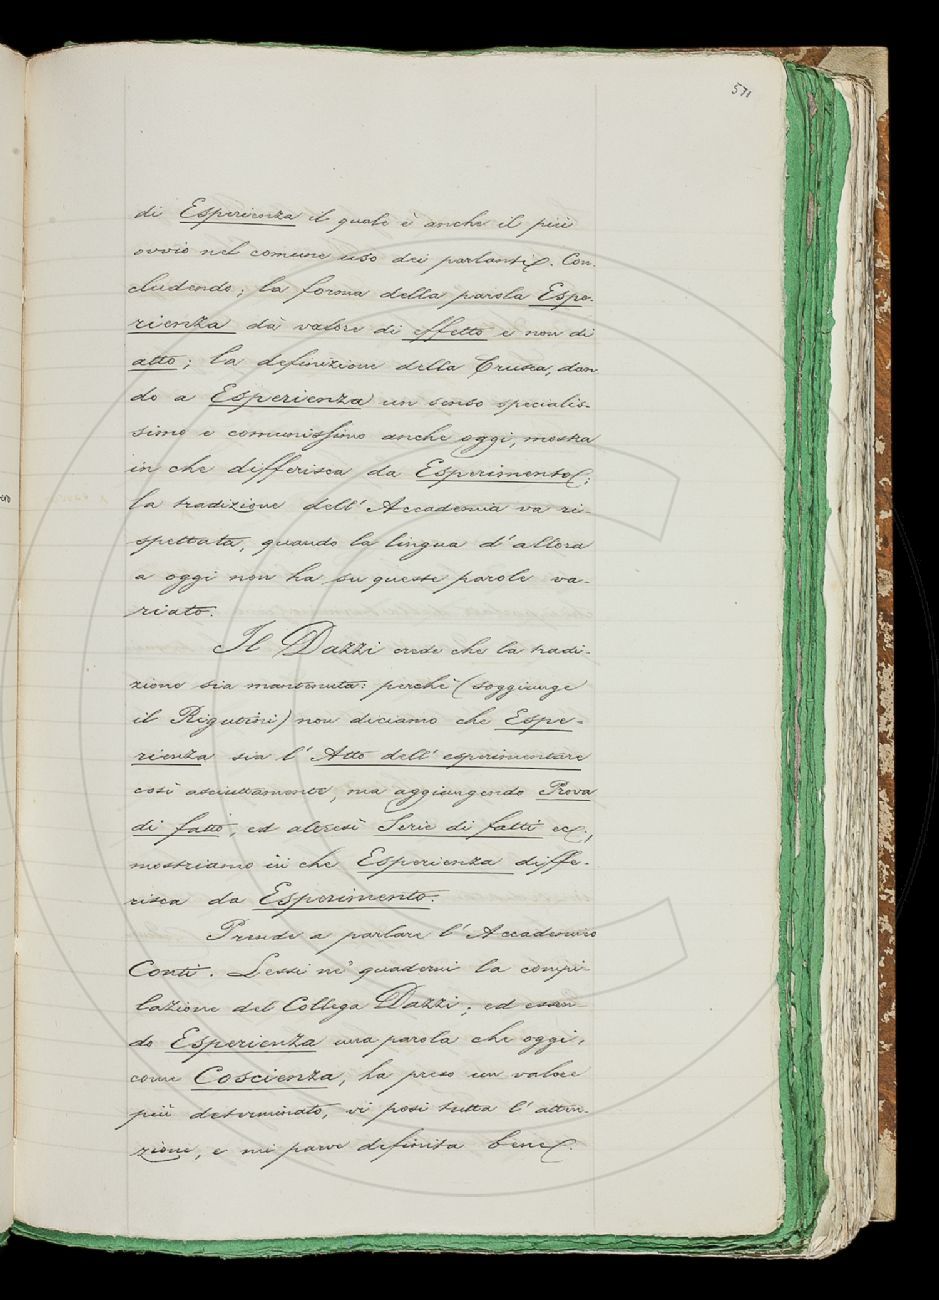 571
di Esperienza il quale è anche il più
ovvio nel comune uso dei parlanti. Con-
cludendo; la forma della parola Espe-
rienza dà valore di effetto e non di
atto; la definizione della Crusca, dan
do a Esperienza un senso specialis-
simo e comunissimo anche oggi, mostra
in che differisca da Esperimento;
la tradizione dell'Accademia va ri-
spettata, quando la lingua d'allora
a oggi non ha su queste parole va-
riato.
Il Dazzi crede che la tradi-
zione sia mantenuta: perchè (soggiunge
il Rigutini) non diciamo che Espe-
rienza sia l'Atto dell'esperimentare
così asciuttamente, ma aggiungendo Prova
di fatto, ed altresì Serie di fatti ec.,
mostriamo in che Esperienza diffe-
risca da Esperimento.
Prende a parlare l'Accademico
Conti. Lessi ne' quaderni la compi
lazione del Collega Dazzi; ed essen
do Esperienza una parola che oggi,
come Coscienza, ha preso un valore
più determinato, vi posi tutta l'atten-
zione, e mi parve definita bene.